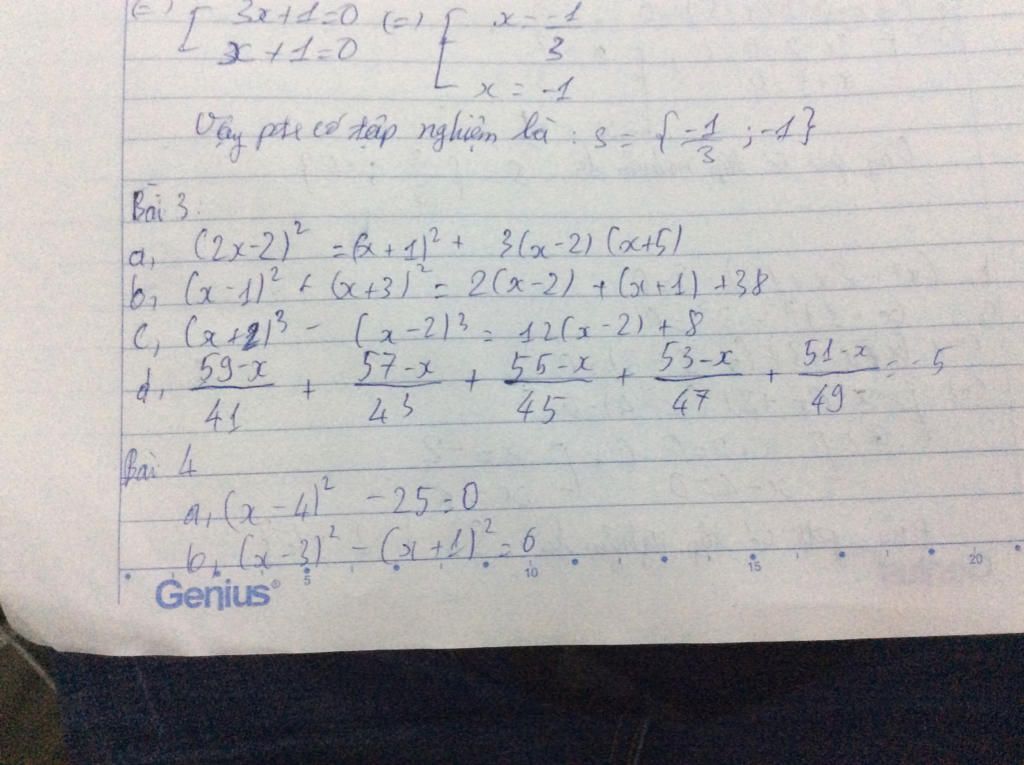 (=) [ 3x+1=0 (=) [ x = -1/3
x+1=0
x = -1
Vậy pt có tập nghiệm là : S = {-1/3 ; -1}
Bài 3:
a, (2x-2)² = (x+1)² + 3(x-2)(x+5)
b, (x-1)² + (x+3)² = 2(x-2) + (x+1) + 38
c, (x+2)³ - (x-2)³ = 12(x-2) + 8
d, 59-x/41 + 57-x/43 + 55-x/45 + 53-x/47 + 51-x/49 = -5
Bài 4
a, (x-4)² - 25 = 0
b, (x-3)² - (x+1)² = 0
5 10 15 20
Genius®